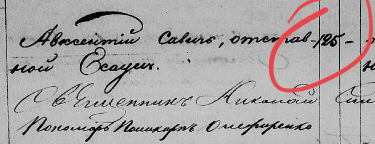 Авксентій Савичъ, отстав- 125 -
ной Есаулъ.
Священникъ Николай
Пономарь Поликарпъ Онефиренко